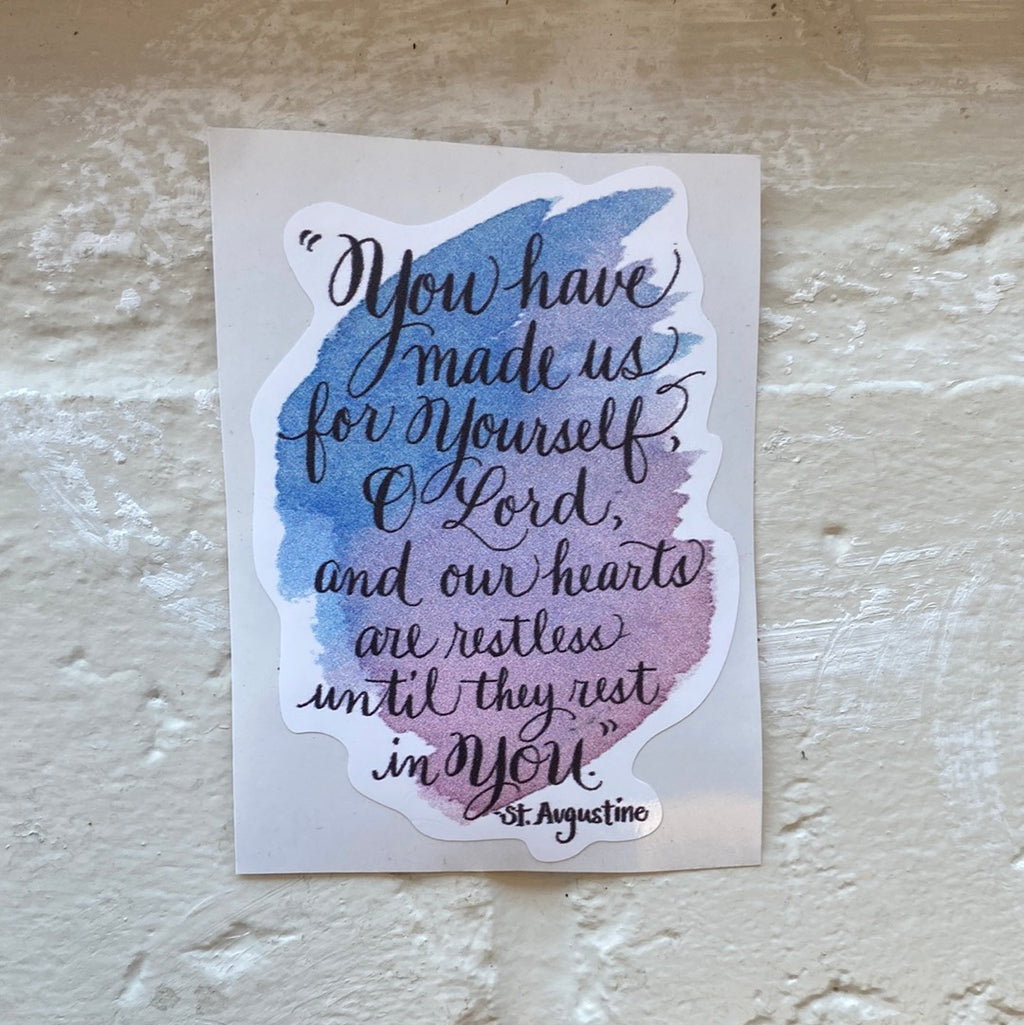 "You have
made us
for Yourself,
O Lord,
and our hearts
are restless
until they rest
in YOU."
-St. Augustine